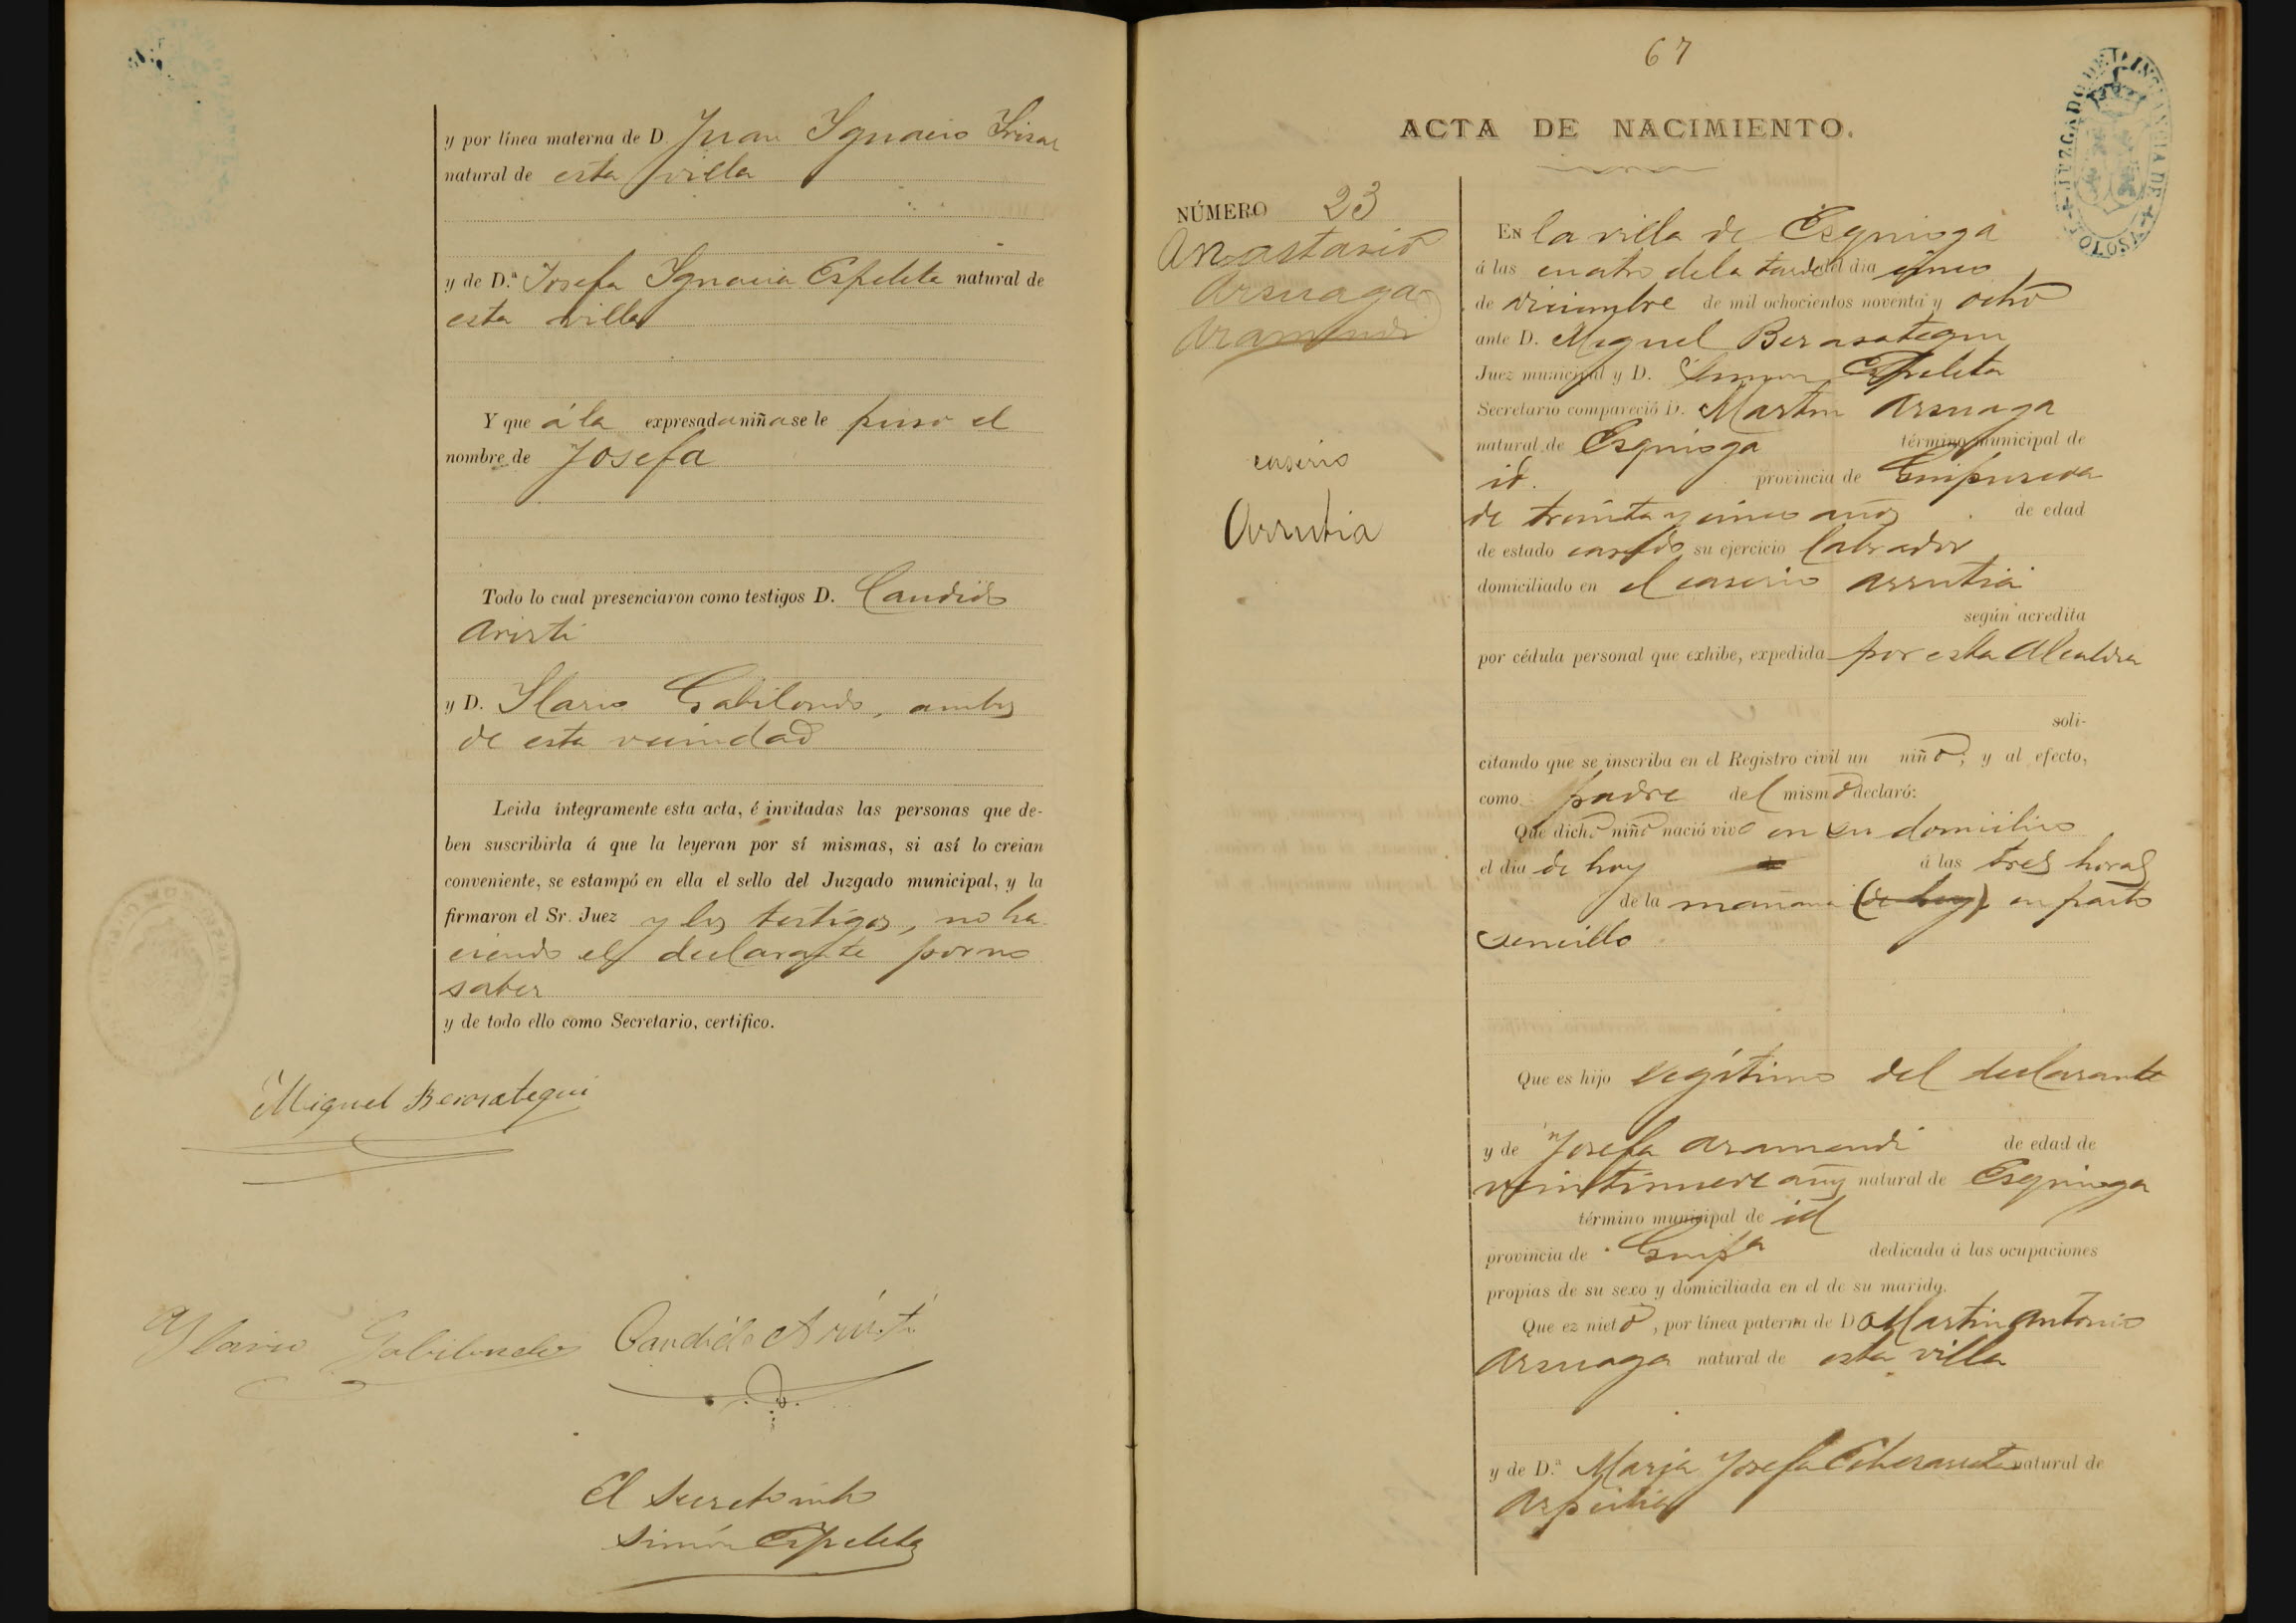 y por línea materna de D. Juan Ygnacio Irizar
natural de esta villa
y de D.ª Josefa Ygnacia Espeleta natural de
esta villa
Y que á la expresada niña se le puso el
nombre de Josefa
Todo lo cual presenciaron como testigos D. Candido
Aristi
y D. Ylario Gabilondo, ambos
de esta vecindad
Leida íntegramente esta acta, é invitadas las personas que de-
ben suscribirla á que la leyeran por sí mismas, si así lo creian
conveniente, se estampó en ella el sello del Juzgado municipal, y la
firmaron el Sr. Juez y los testigos, no ha
ciendo el declarante por no
saber
y de todo ello como Secretario, certifico.
Miguel Berasategui
Ylario Gabilondo Candido Aristi
El Secretario
Simón Espeleta
67
ACTA DE NACIMIENTO.
JUZGADO DE
TOLOSA
NÚMERO 23
Anastasio
Arsuaga
Aramendi
caserio
Arrutia
EN la villa de Ezquioga
á las cuatro de la tarde del dia cinco
de diciembre de mil ochocientos noventa y ocho
ante D. Miguel Berasategui
Juez municipal y D. Simon Espeleta
Secretario compareció D. Martin Arsuaga
natural de Ezquioga término municipal de
id. provincia de Guipuzcoa
de treinta y cinco años de edad
de estado casado su ejercicio labrador
domiciliado en el caserio Arrutia
según acredita
por cédula personal que exhibe, expedida por esta Alcaldia
soli-
citando que se inscriba en el Registro civil un niño, y al efecto,
como padre del mismo declaró:
Que dicho niño nació vivo en su domicilio
el dia de hoy á las tres horas
de la mañana (de hoy) en parto
sencillo
Que es hijo legítimo del declarante
y de Josefa Aramendi de edad de
veintinueve años natural de Ezquioga
término municipal de id
provincia de Guipª dedicada á las ocupaciones
propias de su sexo y domiciliada en el de su marido.
Que ez nieto, por línea paterna de D Martin Antonio
Arsuaga natural de esta villa
y de D.ª Maria Josefa natural de
Azpeitia